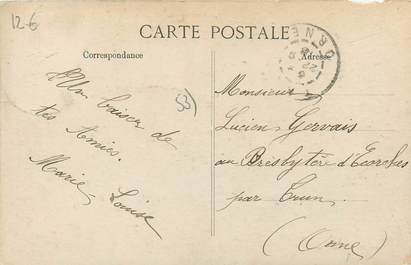 12-6
CARTE POSTALE
Correspondance
Adresse
ORNE
22
53
Un baiser de
tes Amies.
Marie-Louise
Monsieur
Lucien Gervais
au Presbytère d'Ecorches
par Trun
(Orne)